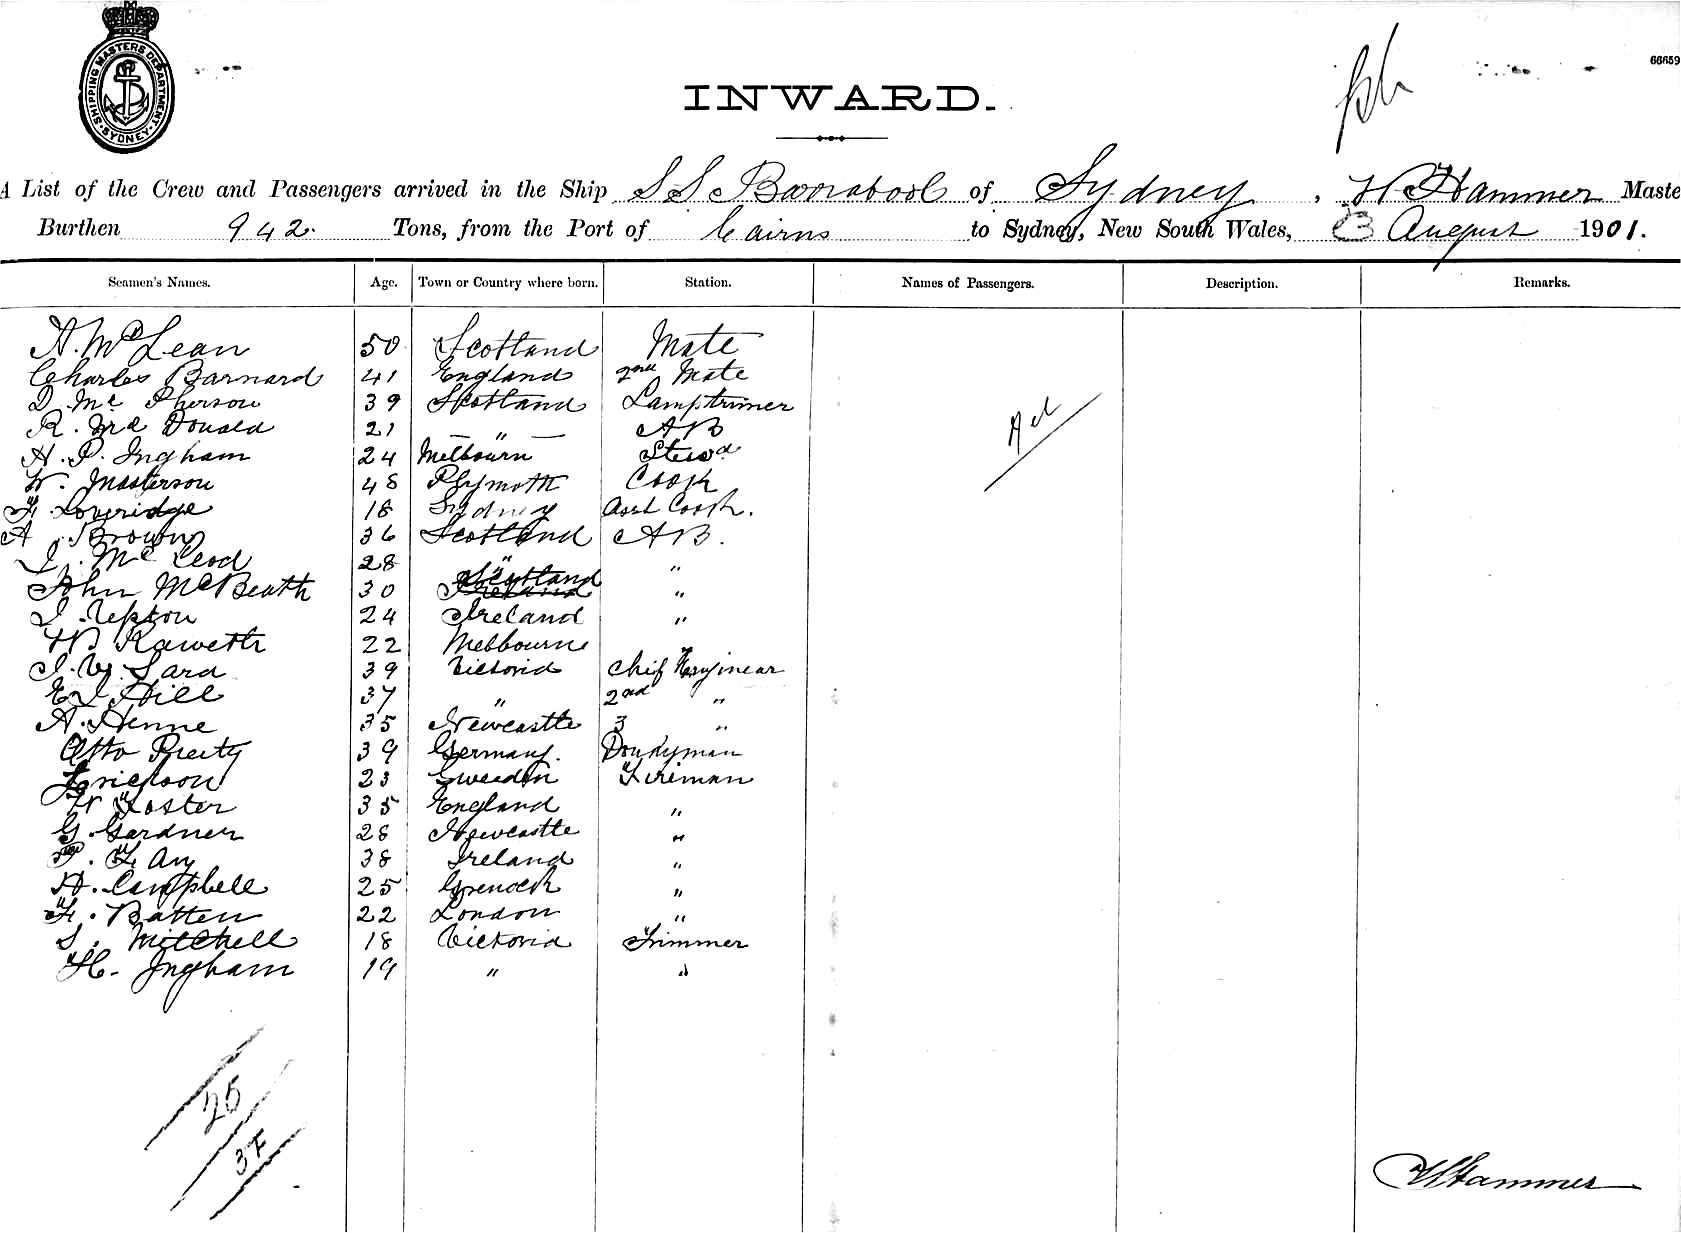 SHIPPING MASTERS DEPARTMENT
SYDNEY
66659
INWARD.
A List of the Crew and Passengers arrived in the Ship S S Barrabool of Sydney, Hammer Maste
Burthen 942. Tons, from the Port of Cairns to Sydney, New South Wales, 3 August 1901.
Seamen's Names. Age. Town or Country where born. Station. Names of Passengers. Description. Remarks.
A. McLean 50 Scotland Mate
Charles Barnard 41 England 2nd Mate
D. McPherson 39 Scotland Lamptrimer
R. McDonald 21 — " — AB
H. P. Ingham 24 Melbourn Stewd
W. Masterson 48 Plymoth Cook
F. Loveridge 18 Sydney Asst Cook.
A Brown 36 Scotland AB.
McLeod 28 " "
John McBeath 30 Scotland "
Upton 24 Ireland "
W 22 Melbourne "
39 Victoria Chif Enginear
Hill 37 " 2nd "
A. Henne 35 Newcastle 3 "
Otto 39 Germany. Donkyman
Ericsson 23 Sweeden Fireman
W Foster 35 England "
G. Gardner 28 Newcastle "
38 Ireland "
A. Campbell 25 Grenock "
F. Batten 22 London "
S. Mitchell 18 Victoria Trimmer
H. Ingham 19 " "
25
Hammer